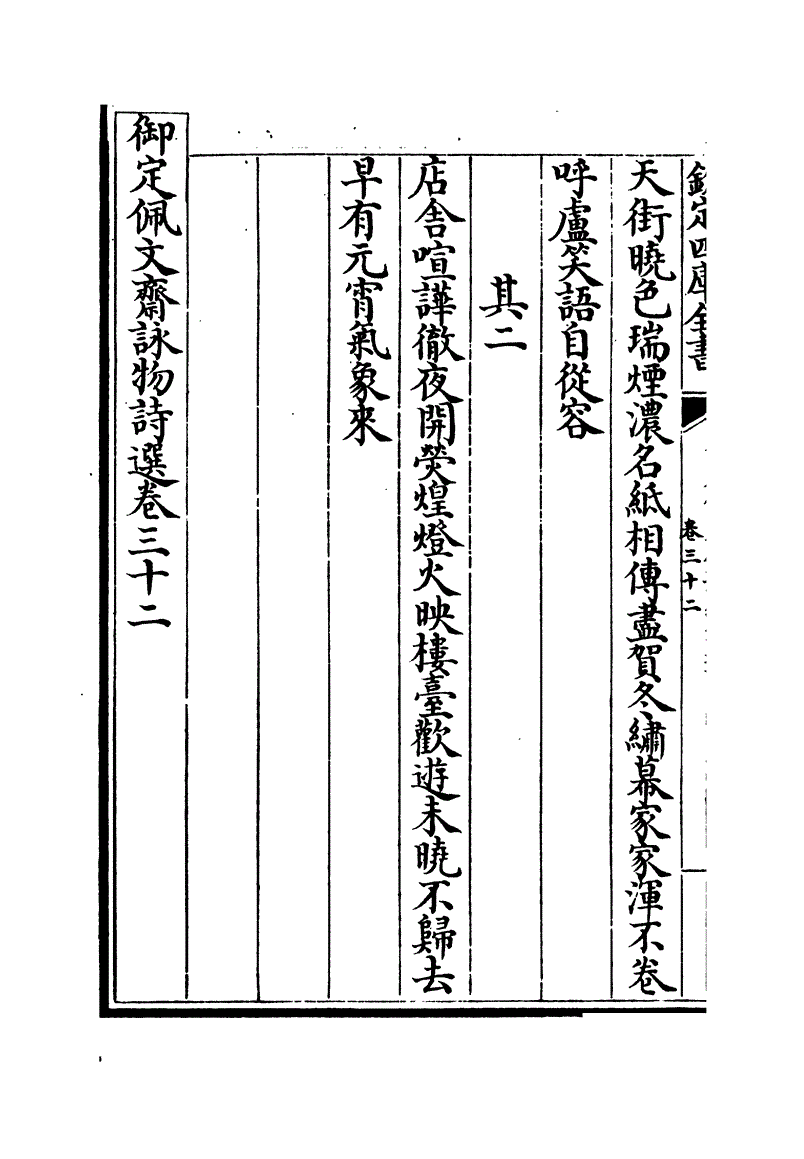 欽定四庫全書
卷三十二
天街曉色瑞煙濃名紙相傳盡賀冬繡幕家家渾不卷
呼盧笑語自從容
其二
店舎喧譁徹夜開熒煌燈火映樓臺歡遊未曉不歸去
早有元宵氣象來
御定佩文齋詠物詩選卷三十二